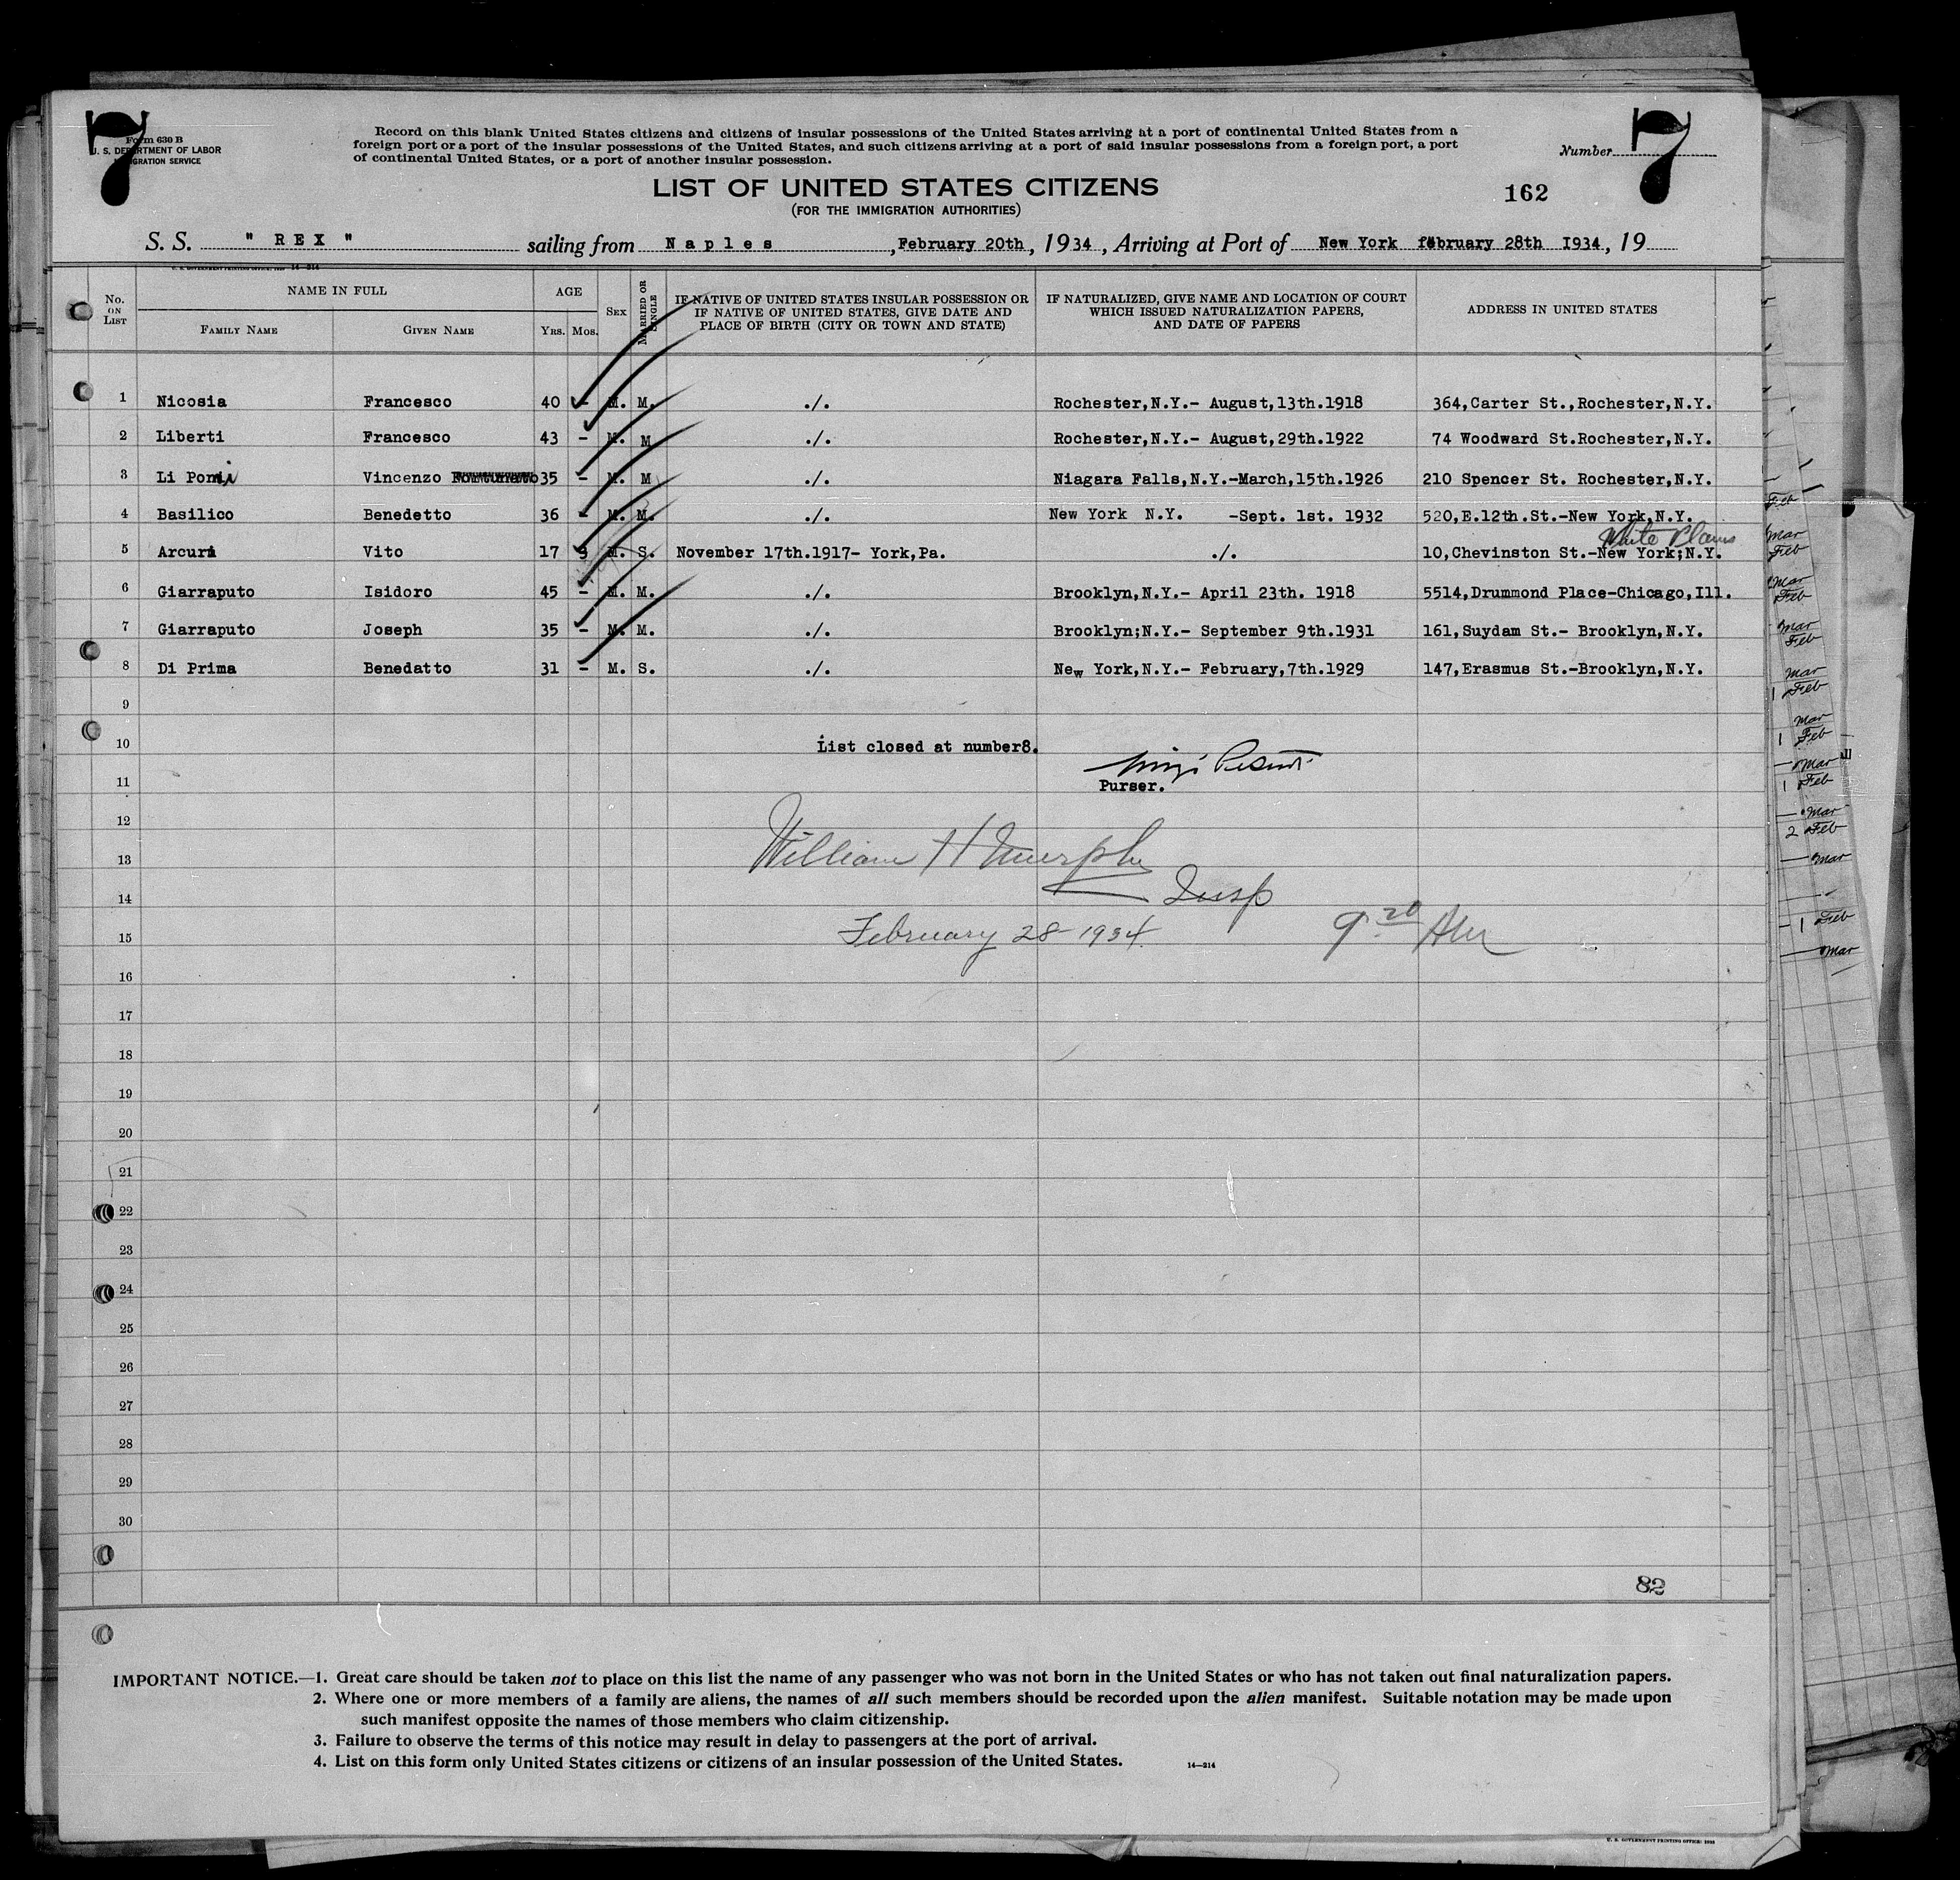 7
Form 630 B
U. S. DEPARTMENT OF LABOR
IMMIGRATION SERVICE
Record on this blank United States citizens and citizens of insular possessions of the United States arriving at a port of continental United States from a
foreign port or a port of the insular possessions of the United States, and such citizens arriving at a port of said insular possessions from a foreign port, a port
of continental United States, or a port of another insular possession.
Number 7
LIST OF UNITED STATES CITIZENS
162
(FOR THE IMMIGRATION AUTHORITIES)
S. S. " REX " sailing from Naples, February 20th, 1934, Arriving at Port of New York february 28th 1934, 19
No. ON LIST
NAME IN FULL
FAMILY NAME
GIVEN NAME
AGE
YRS. MOS.
SEX
MARRIED OR SINGLE
IF NATIVE OF UNITED STATES INSULAR POSSESSION OR
IF NATIVE OF UNITED STATES, GIVE DATE AND
PLACE OF BIRTH (CITY OR TOWN AND STATE)
IF NATURALIZED, GIVE NAME AND LOCATION OF COURT
WHICH ISSUED NATURALIZATION PAPERS,
AND DATE OF PAPERS
ADDRESS IN UNITED STATES
1 Nicosia Francesco 40 - M. M. ./. Rochester,N.Y.- August,13th.1918 364,Carter St.,Rochester,N.Y.
2 Liberti Francesco 43 - M. M ./. Rochester,N.Y.- August,29th.1922 74 Woodward St.Rochester,N.Y.
3 Li Pomi Vincenzo 35 - M. M ./. Niagara Falls,N.Y.-March,15th.1926 210 Spencer St. Rochester,N.Y.
4 Basilico Benedetto 36 - M. M. ./. New York N.Y. -Sept. 1st. 1932 520,E.12th.St.-New York,N.Y.
White Plains
5 Arcuri Vito 17 3 M. S. November 17th.1917- York,Pa. ./. 10,Chevinston St.-New York;N.Y.
6 Giarraputo Isidoro 45 - M. M. ./. Brooklyn,N.Y.- April 23th. 1918 5514,Drummond Place-Chicago,Ill.
7 Giarraputo Joseph 35 - M. M. ./. Brooklyn;N.Y.- September 9th.1931 161,Suydam St.- Brooklyn,N.Y.
8 Di Prima Benedatto 31 - M. S. ./. New York,N.Y.- February,7th.1929 147,Erasmus St.-Brooklyn,N.Y.
9
10 List closed at number8.
11 Purser.
12
13 William H Murphy
14 Insp
15 February 28 1934 9 30 AM
16
17
18
19
20
21
22
23
24
25
26
27
28
29
30
82
IMPORTANT NOTICE.—1. Great care should be taken not to place on this list the name of any passenger who was not born in the United States or who has not taken out final naturalization papers.
2. Where one or more members of a family are aliens, the names of all such members should be recorded upon the alien manifest. Suitable notation may be made upon
such manifest opposite the names of those members who claim citizenship.
3. Failure to observe the terms of this notice may result in delay to passengers at the port of arrival.
4. List on this form only United States citizens or citizens of an insular possession of the United States. 14—214
U. S. GOVERNMENT PRINTING OFFICE: 1933